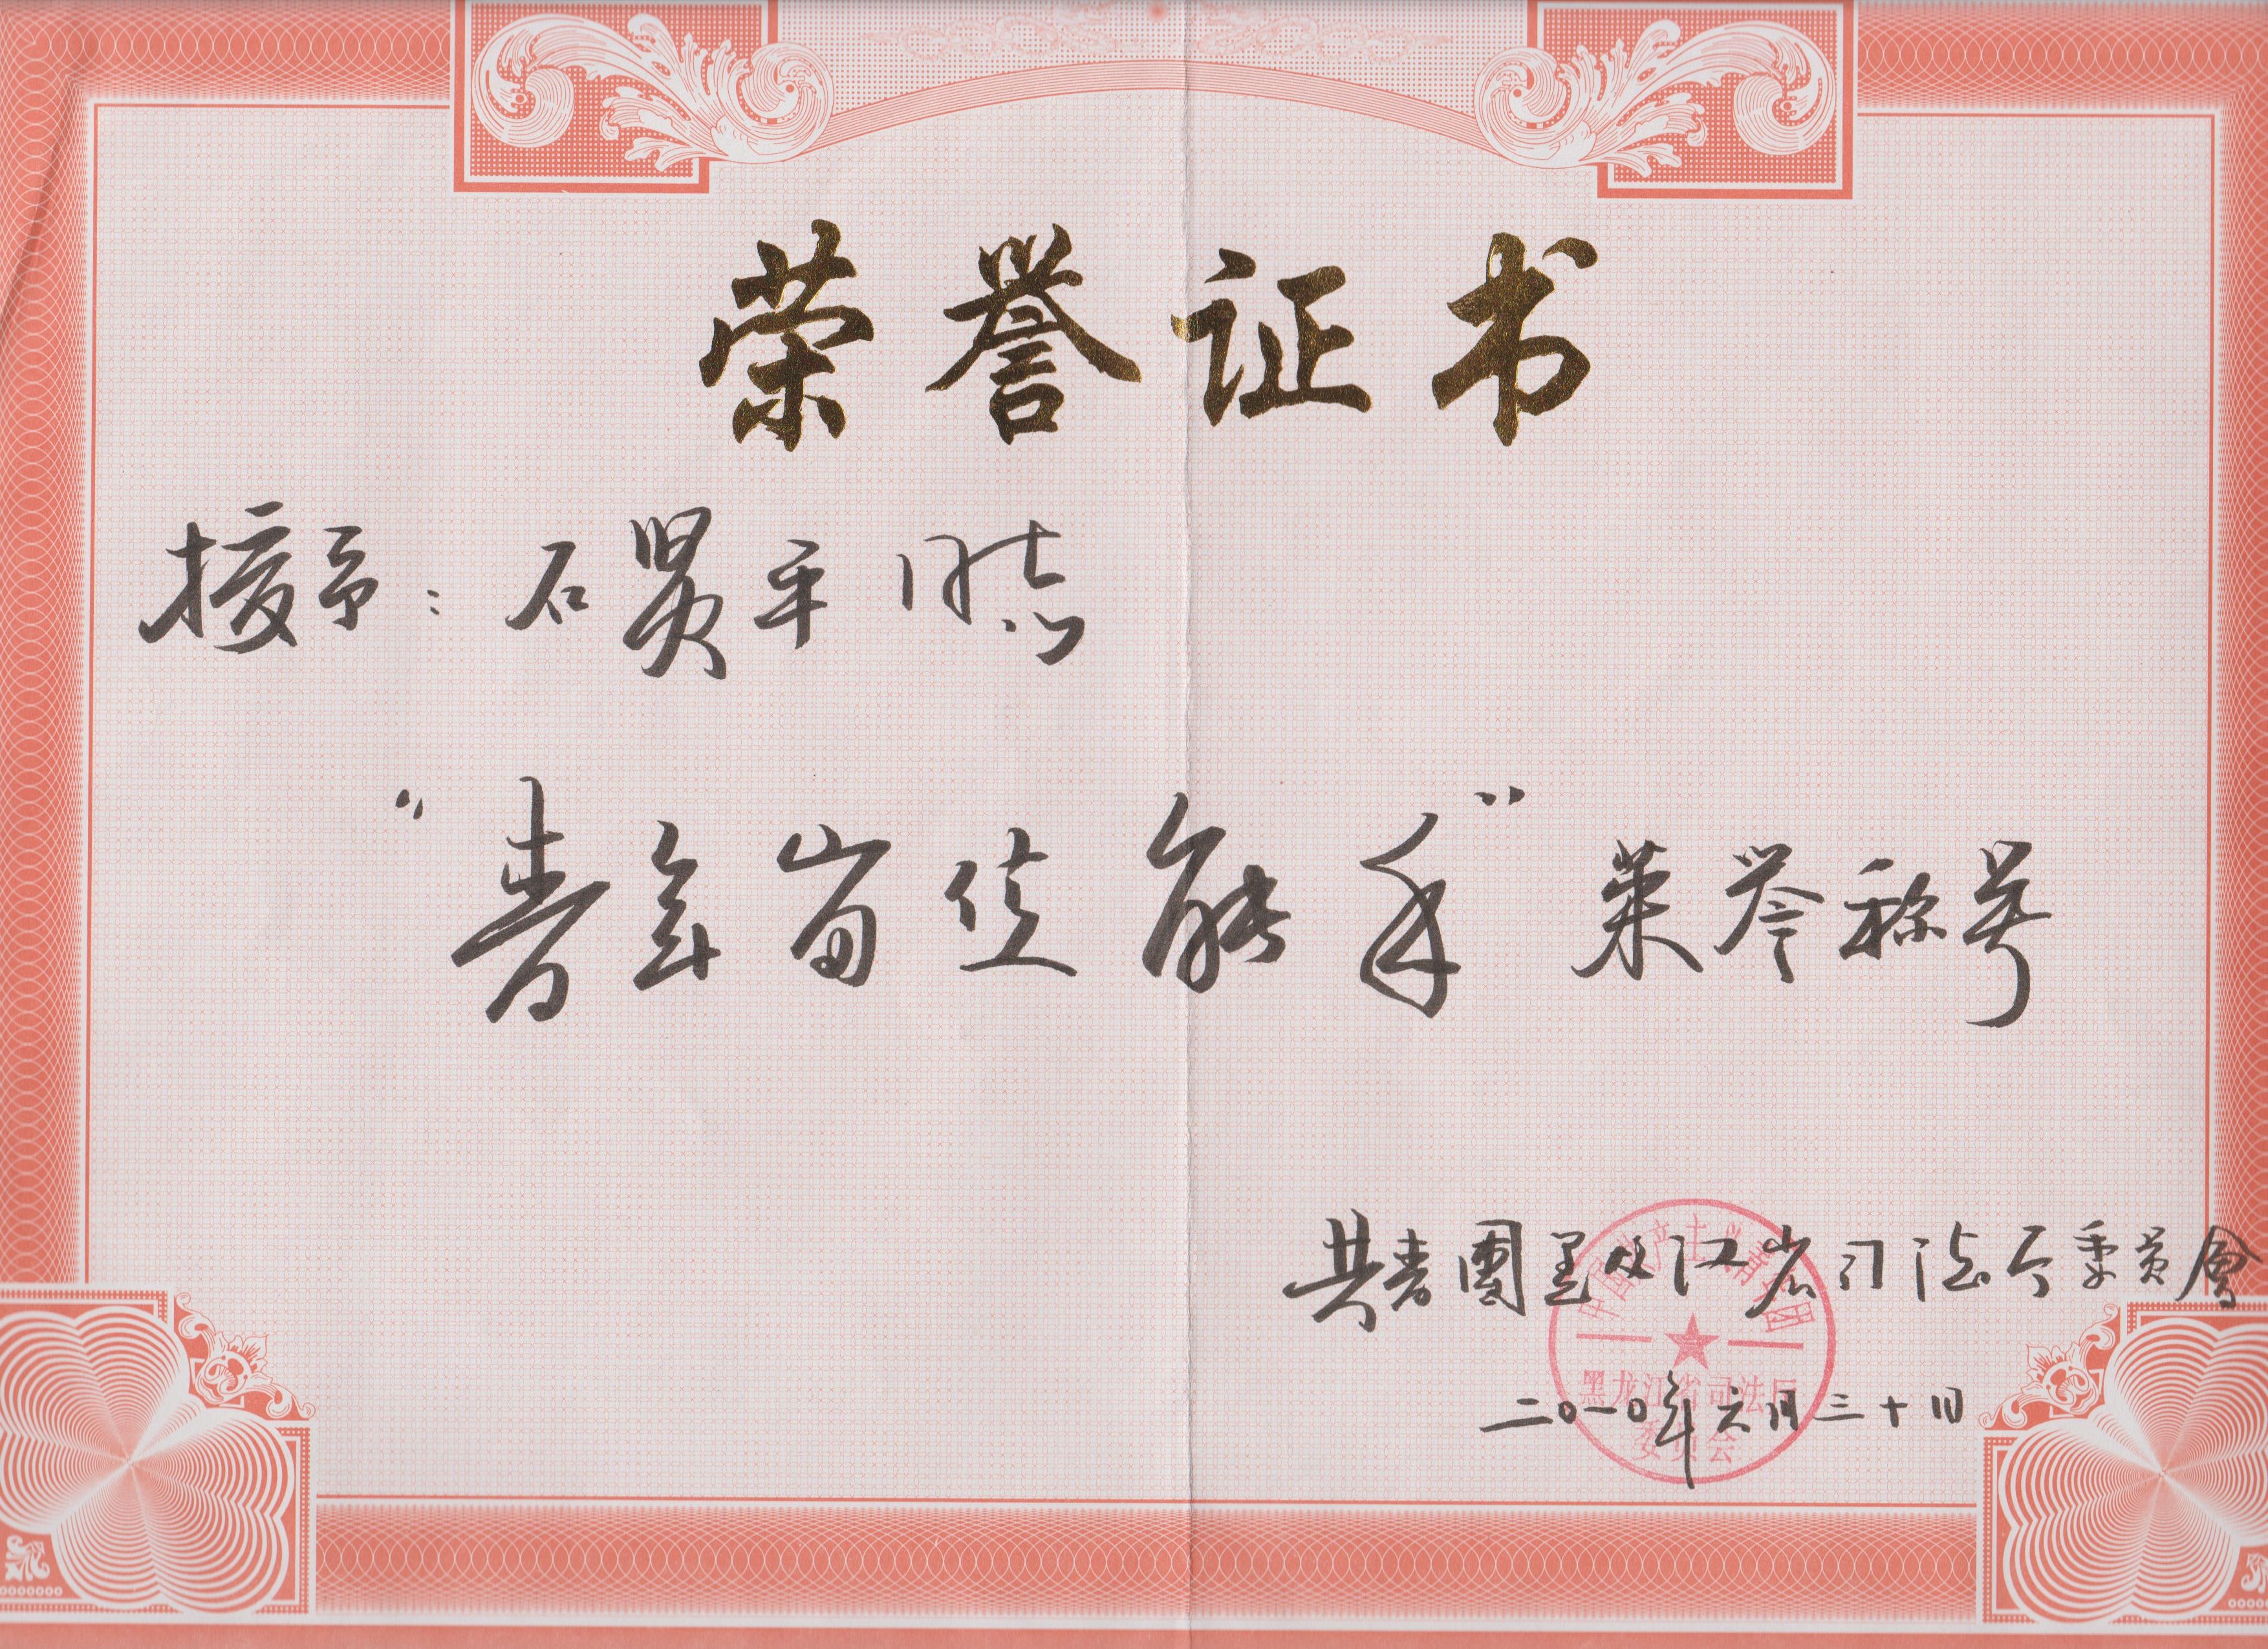 荣誉证书
授予：石贤平同志
“青年岗位能手”荣誉称号
共青團黑龙江省司法厅委员會
二〇一〇年六月三十日
中国共产主义青年团
黑龙江省司法厅
委员会